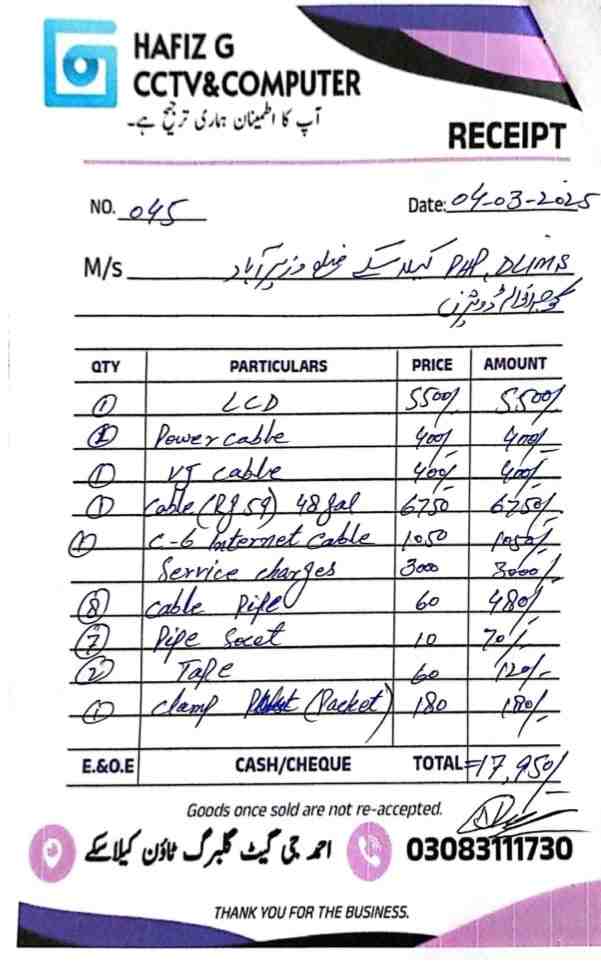 HAFIZ G
CCTV&COMPUTER
آپ کا اطمینان ہماری ترجیح ہے۔
RECEIPT
NO. 045 Date: 04-03-2025
M/s PHP, DLIMS کیلاسکے ضلع وزیرآباد
گوجرانوالہ ڈویژن
QTY PARTICULARS PRICE AMOUNT
1 LCD 5500/- 5500/-
1 Power cable 400/- 400/-
1 VJ cable 400/- 400/-
1 Cable (RJ 59) 48 gal 6750 6750/-
1 C-6 Internet Cable 1050 1050/-
Service charges 3000 3000/-
8 Cable Pipe 60 480/-
7 Pipe Socet 10 70/-
2 Tape 60 120/-
1 Clamp (Packet) 180 180/-
E.&O.E CASH/CHEQUE TOTAL =17,950/-
Goods once sold are not re-accepted.
احمد جی گیٹ گلبرگ ٹاؤن کیلاسکے 03083111730
THANK YOU FOR THE BUSINESS.